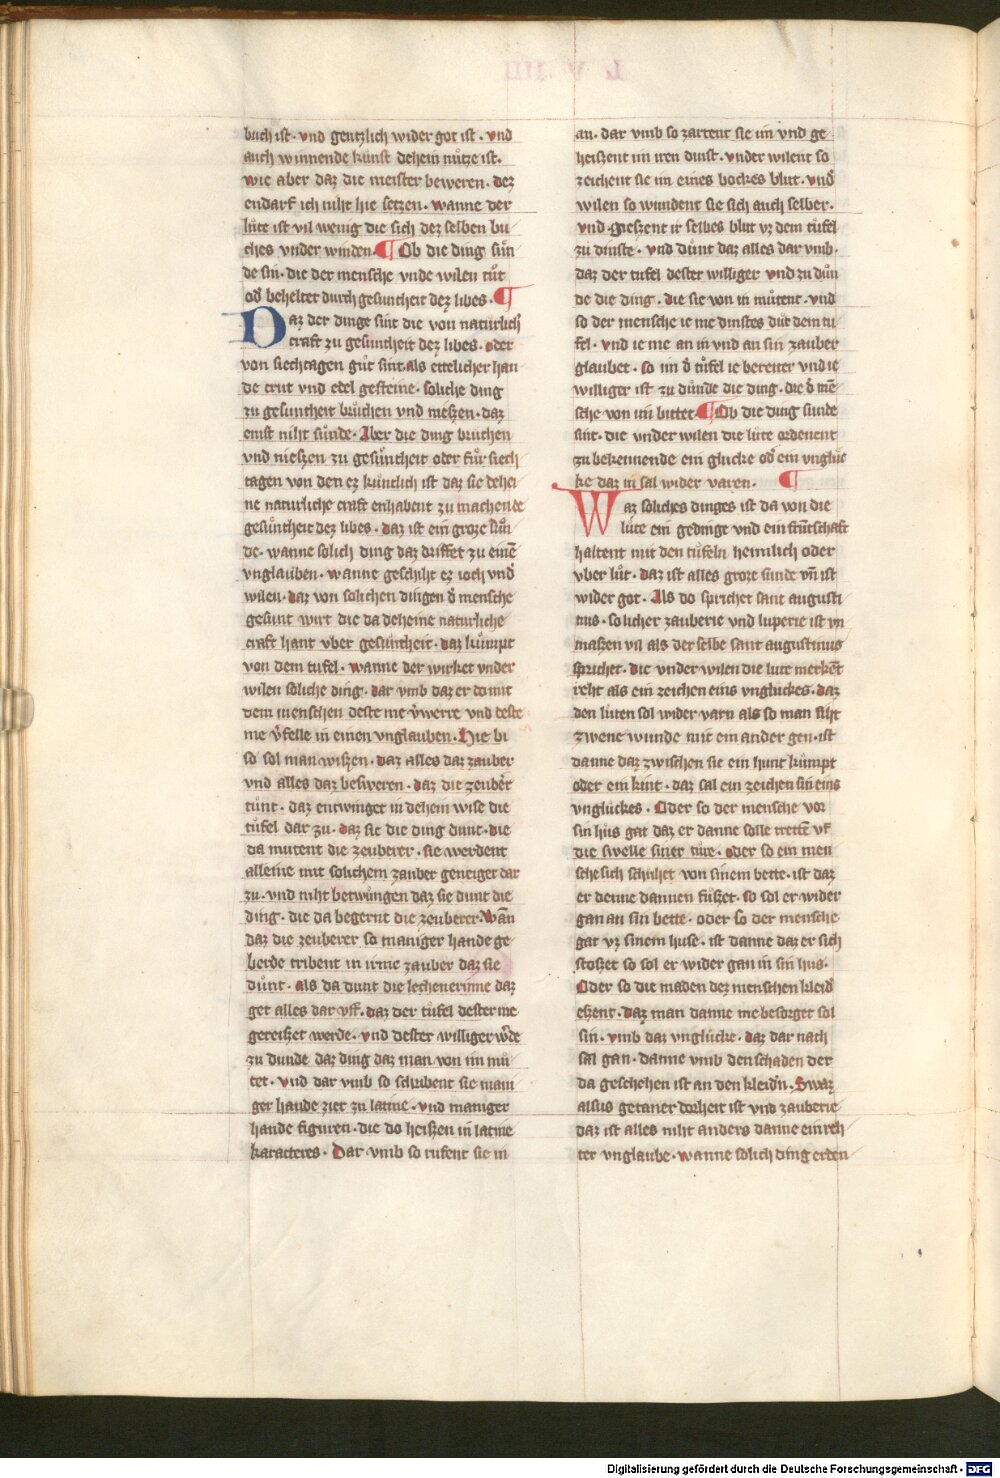 buch ist · vnd gentzlich wider got ist · vnd
auch winnende kúnst dehein nútze ist ·
wie aber daz die meister beweren · dez
endarf ich niht hie setzen · wanne der
lúte ist vil wenig die sich dez selben bu
ches vnder winden · ¶ Ob die ding sún
de sin · die der mensche vnde wilen tůt
od̓ beheltet durch gesuntheit dez libes · ¶
Daz der dinge sint die von naturlich̓
craft zu gesuntheit dez libes · oder
von siechtagen gůt sint · als ettelicher han
de crut vnd edel gesteine · soliche ding
zu gesuntheit brůchen vnd nieszen · daz
enist niht súnde · Aber die ding bruchen
vnd nieszen zu gesúntheit oder fúr siech
tagen von den ez kúntlich ist daz sie dehei
ne naturliche craft enhabent zu machende
gesúntheit dez libes · daz ist ein groze sún
de · wanne solich ding daz driffet zu einē
vnglauben · wanne geschiht ez ioch vnd̓
wilen · daz von solichen dingen d̓ mensche
gesunt wirt die da deheine naturliche
craft hant vber gesuntheit · daz kúmpt
von dem tufel · wanne der wirket vnder
wilen soliche ding · dar vmb daz er do mit
dem menschen deste me v̓werre vnd deste
me v̓felle in einen vnglauben · Hie bi
so sol man wiszen · daz alles daz zauber
vnd alles daz besweren · daz die zeub̓er
tůnt · daz entwinget in dehein wise die
túfel dar zu · daz sie die ding dunt · die
da mutent die zeuberer · sie werdent
alleine mit solichem zauber geneiget dar
zu · vnd niht betwúngen daz sie dunt die
ding · die da begernt die zeuberer · Wan̄
daz die zeuberer so maniger hande ge
berde tribent in irme zauber daz sie
dúnt · als da dunt die lechenerinne daz
get alles dar vff · daz der túfel dester me
gereiszet werde · vnd dester williger w̓de
zu dunde daz ding daz man von im mů
tet · vnd dar vmb so schribent sie mani
ger hande ziet zu latine · vnd maniger
hande figuren · die do heiszen in latine
karacteres · Dar vmb so rufent sie in
an · dar vmb so zartent sie im vnd ge
heiszent im iren dinst · vnder wilent so
zeichent sie im eines bockes blut · vnd̓
wilen so wundent sie sich auch selber ·
vnd gieszent ir selbes blut vz dem túfel
zu dinste · vnd dúnt daz alles dar vmb ·
daz der tufel dester williger vnd zu dún
de die ding · die sie von in můtent · vnd
so der mensche ie me dinstes důt dem tu
fel · vnd ie me an in vnd an sin zauber
glaubet · so im d̓ túfel ie bereiter vnd ie
williger ist zu dúnde die ding · die d̓ mē
sche von im bittet · ¶ Ob die ding sunde
sint · die vnder wilen die lúte ordenent
zu bekennende ein glucke od̓ ein vnglúc
ke daz in sal wider varen · ¶
Waz soliches dinges ist da von die
lúte ein gedinge vnd ein frútschaft
haltent mit den túfeln heimlich oder
vber lút · daz ist alles groze sunde vn̄ ist
wider got · Als do sprichet sant augusti
nus · solicher zauberie vnd luperie ist vn
maszen vil als der selbe sant augustinus
sprichet · die vnder wilen die lute merkēt
reht als ein zeichen eins vngluckes · daz
den lúten sol wider varn als so man siht
zwene wunde mit ein ander gen · ist
danne daz zwischen sie ein hunt kúmpt
oder ein kint · daz sal ein zeichen sin eins
vnglúckes · Oder so der mensche vor
sin hůs gat daz er danne solle trettē vf
die swelle siner túre · oder so ein men
sche sich schúhet von sinem bette · ist daz
er denne dannen fúszet · so sol er wider
gan an sin bette · oder so der mensche
gat vz sinem huse · ist danne daz er sich
stoszet so sol er wider gan in sin hus ·
Oder so die maden dez menschen kleid̓
eszent · daz man danne me besorget sol
sin · vmb daz vnglúcke · daz dar nach
sal gan · danne vmb den schaden der
da geschehen ist an den kleid̓n · Swaz
alsus getaner dorheit ist vnd zauberie
daz ist alles niht anders danne ein reh
ter vnglaube · wanne solich ding erden